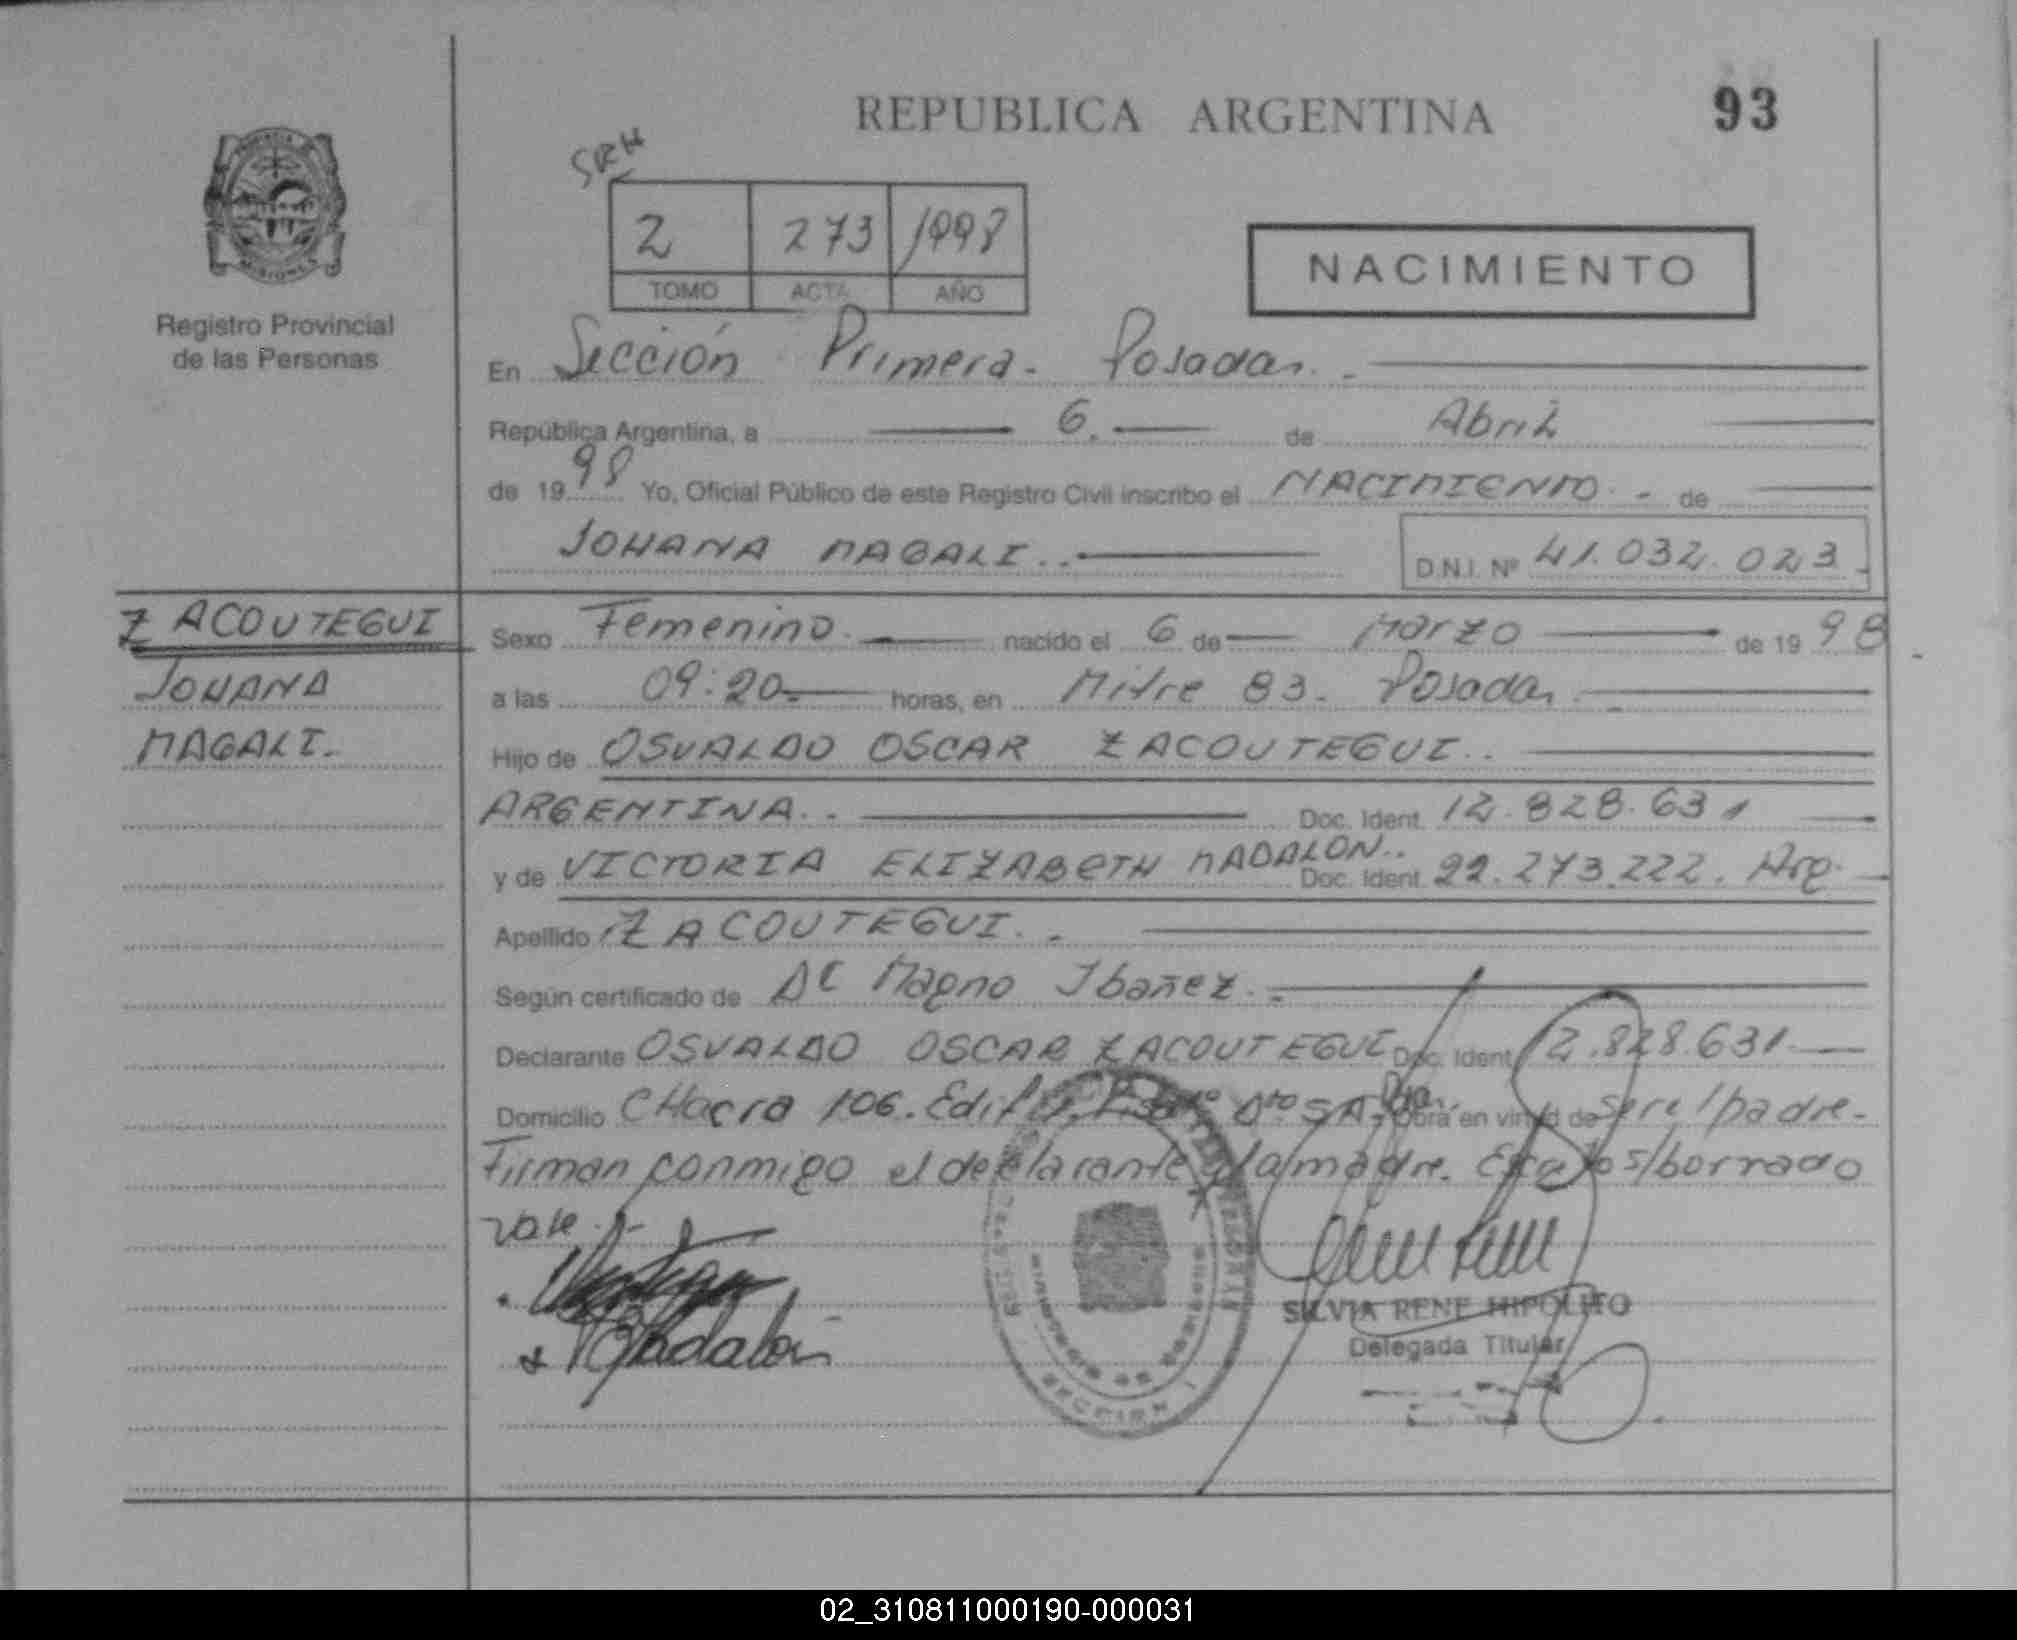 REPUBLICA ARGENTINA
93
SRH
2 273 1998
TOMO ACTA AÑO
NACIMIENTO
PROVINCIA DE
MISIONES
Registro Provincial
de las Personas
En Sección Primera - Posadas. -
República Argentina, a 6. de Abril
de 1998 Yo, Oficial Público de este Registro Civil inscribo el NACIMIENTO. - de
JOHANA MAGALI. .-
D.N.I. Nº 41.032.023.
ZACOUTEGUI
JOHANA
MAGALI.
Sexo Femenino. nacido el 6 de Marzo de 1998
a las 09:20. horas, en Mitre 83. Posadas
Hijo de OSVALDO OSCAR ZACOUTEGUI. .
ARGENTINA. . Doc. Ident. 12.828.631
y de VICTORIA ELIZABETH MADALON. . Doc. Ident. 22.273.222. Arg.
Apellido ZACOUTEGUI. .
Según certificado de Dr Magno Ibañez. .
Declarante OSVALDO OSCAR ZACOUTEGUI Doc. Ident. 12.828.631.
Domicilio CHacra 106. Edif Obra en virtud de ser el padre.
Firman conmigo el declarante y la madre. s/borrado
vale.
SILVIA RENE HIPOLITO
Delegada Titular
SECCION 1
02_310811000190-000031